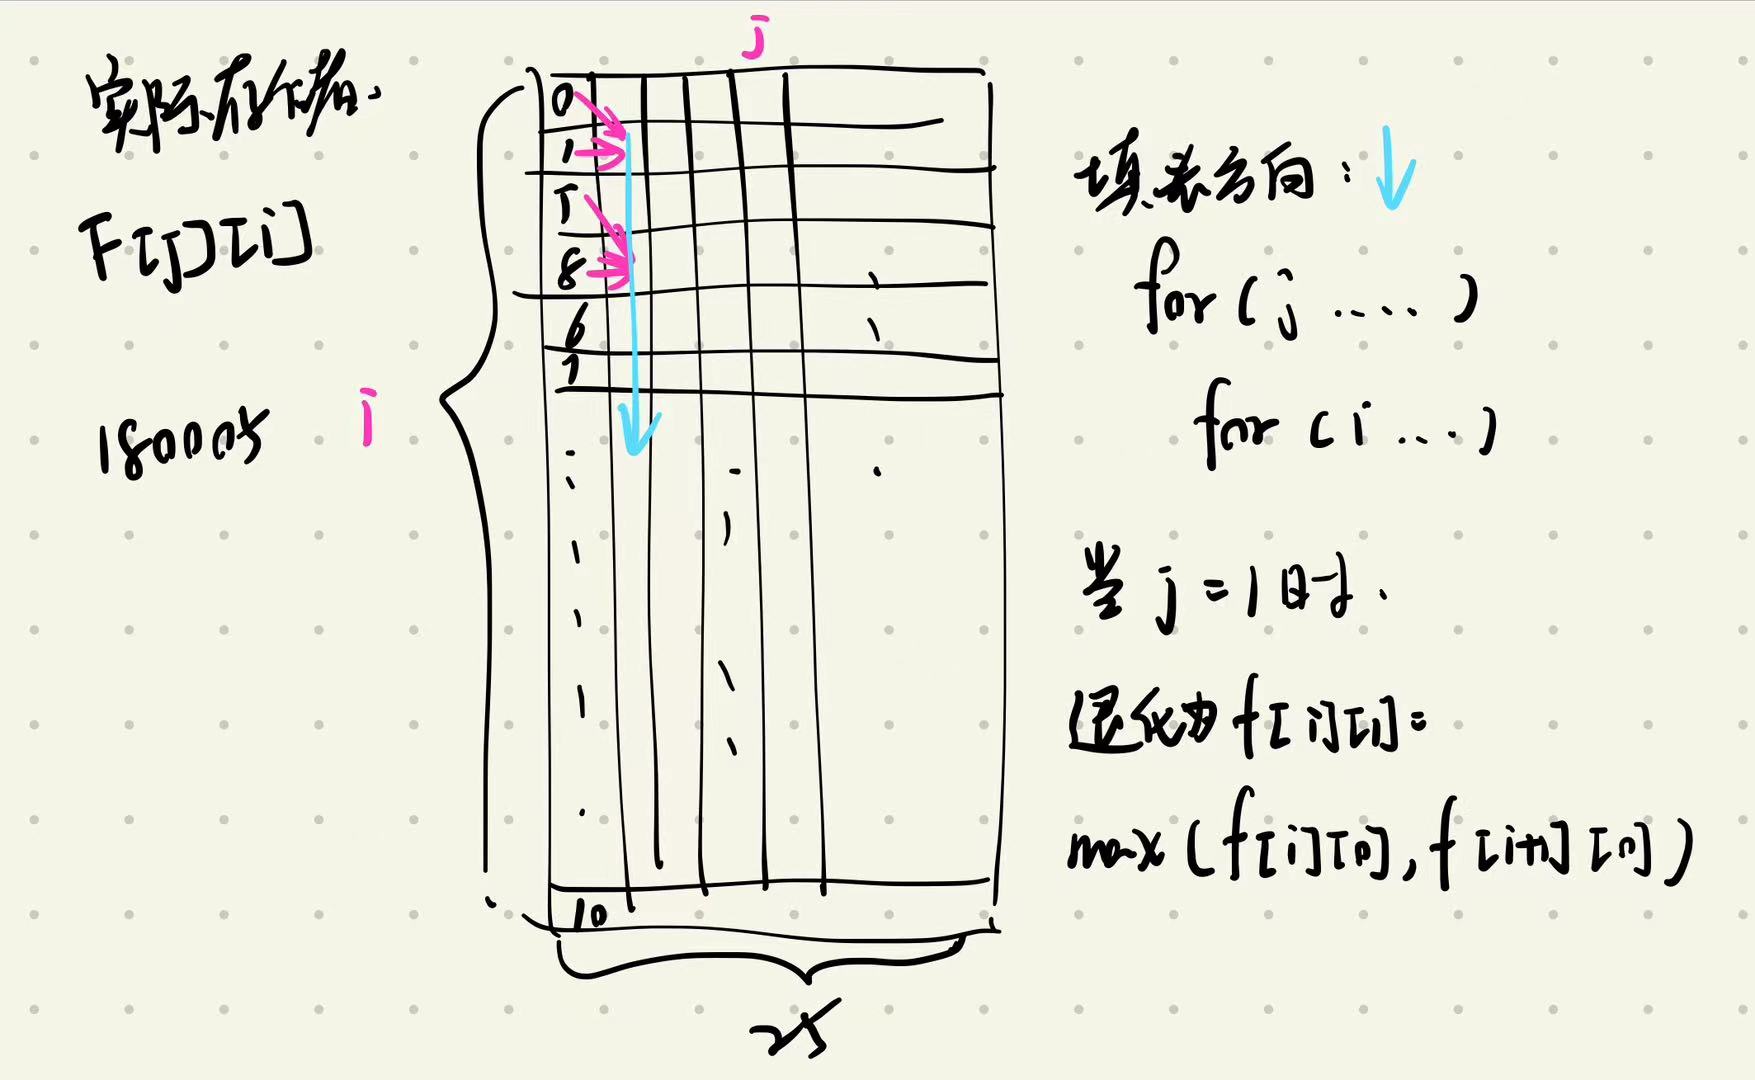 实际存储:
F[j][i]
180005
i
j
0
1
5
8
6
7
10
25
填表方向:
for(j....)
for(i...)
当j=1时.
退化为f[i][1]=
max(f[i][0],f[i+1][0])